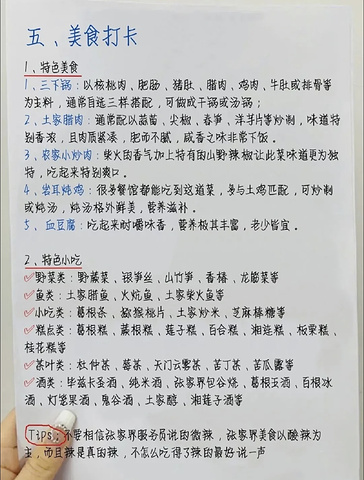 五、美食打卡
1、特色美食
1、三下锅：以核桃肉、肥肠、猪肚、腊肉、鸡肉、牛肚或排骨等
为主料，通常自选三样搭配，可做成干锅或汤锅；
2、土家腊肉：通常配以蒜苗、尖椒、春笋、洋芋片等炒制，味道特
别香浓，且肉质紧凑，肥而不腻，咸香之味非常下饭。
3、农家小炒肉：柴火肉香气加上特有的山野辣椒让此菜味道更为独
特，吃起来特别爽口。
4、岩耳炖鸡：很多餐馆都能吃到这道菜，多与土鸡匹配，可炒制
或炖汤，炖汤格外鲜美，营养滋补。
5、血豆腐：吃起来耐嚼味香，营养极其丰富，老少皆宜。
2、特色小吃
野菜类：野蕨菜、银笋丝、山竹笋、香椿、龙爪菜等
鱼类：土家腊鱼、火炕鱼、土家柴火鱼等
小吃类：葛根条、猕猴桃片、土家炒米、芝麻棒糖等
糕点类：葛根糕、蕨根糕、莲子糕、百合糕、湘莲糕、板栗糕、
桂花糕等
茶叶类：杜仲茶、莓茶、天门云雾茶、苦丁茶、苦瓜露等
酒类：毕兹卡圣酒、纯米酒、张家界包谷烧、葛根玉酒、百根冰
酒、灯笼果酒、鬼谷酒、土家醇、湘莲子酒等
Tips：不要相信张家界服务员说的微辣，张家界美食以酸辣为
主，而且辣是真的辣，不怎么吃得了辣的最好说一声